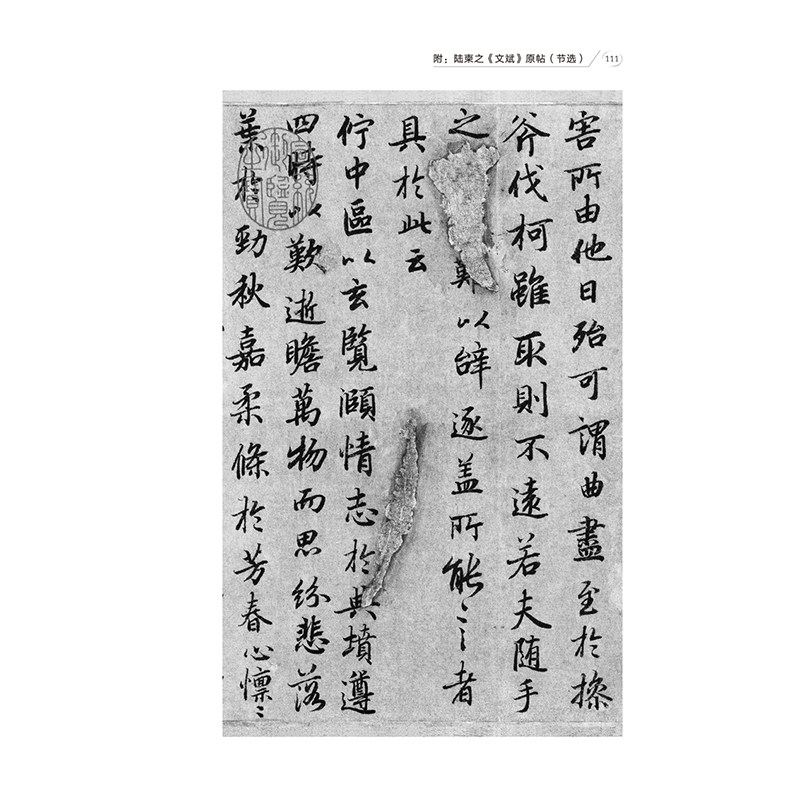 附：陆柬之《文斌》原帖（节选） 111
害所由他日殆可謂曲盡至於操
斧伐柯雖取則不遠若夫随手
之難以辝逐盖所能言者
具於此云
佇中區以玄覽頤情志於典墳遵
四時以歎逝瞻萬物而思紛悲落
葉於勁秋嘉柔條於芳春心懔〻